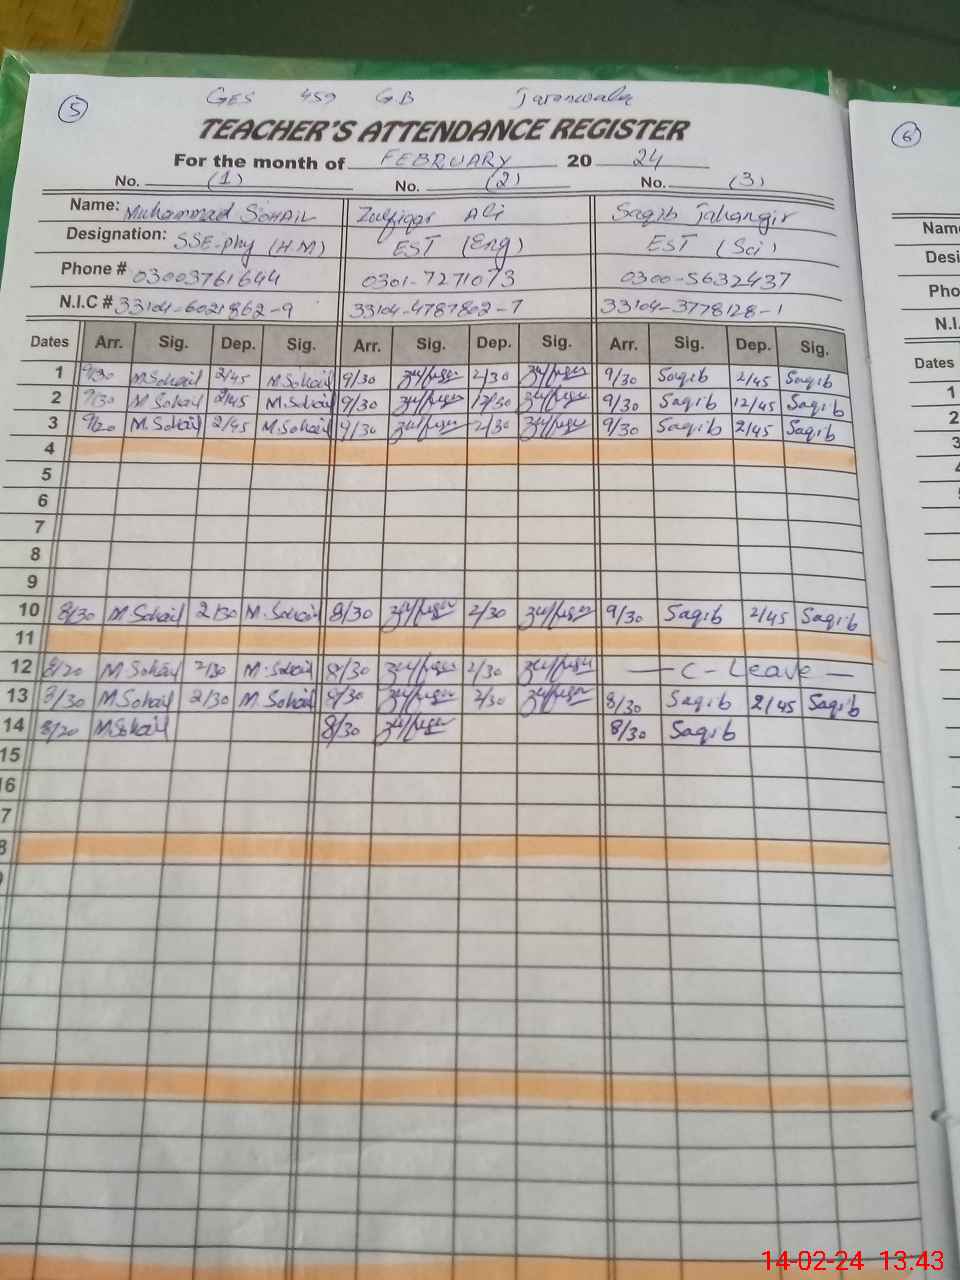 5
GES 459 GB Jaranwala
TEACHER'S ATTENDANCE REGISTER
6
For the month of FEBRUARY 20 24
No. (1) No. (2) No. (3)
Name: Muhammad SOHAIL Zulfiqar Ali Saqib Jahangir
Designation: SSE-Phy (H M) EST (Eng) EST (Sci)
Phone # 03003761644 0301-7271073 0300-5632437
N.I.C # 33104-6021862-9 33104-4787802-7 33104-3778128-1
Dates Arr. Sig. Dep. Sig. Arr. Sig. Dep. Sig. Arr. Sig. Dep. Sig.
1 9/30 M.Sohail 2/45 M.Sohail 9/30 2/30 9/30 Saqib 2/45 Saqib
2 9/30 M.Sohail 2/45 M.Sohail 9/30 12/30 9/30 Saqib 12/45 Saqib
3 9/20 M.Sohail 2/45 M.Sohail 9/30 2/30 9/30 Saqib 2/45 Saqib
4
5
6
7
8
9
10 8/30 M Sohail 2/30 M.Sohail 8/30 2/30 9/30 Saqib 2/45 Saqib
11
12 8/20 M Sohail 2/30 M.Sohail 8/30 2/30 — C - Leave —
13 8/30 M.Sohail 2/30 M.Sohail 8/30 2/30 8/30 Saqib 2/45 Saqib
14 8/20 M.Sohail 8/30 8/30 Saqib
15
16
7
8
Nam
Desi
Pho
N.I.
Dates
1
2
3
14-02-24 13.43